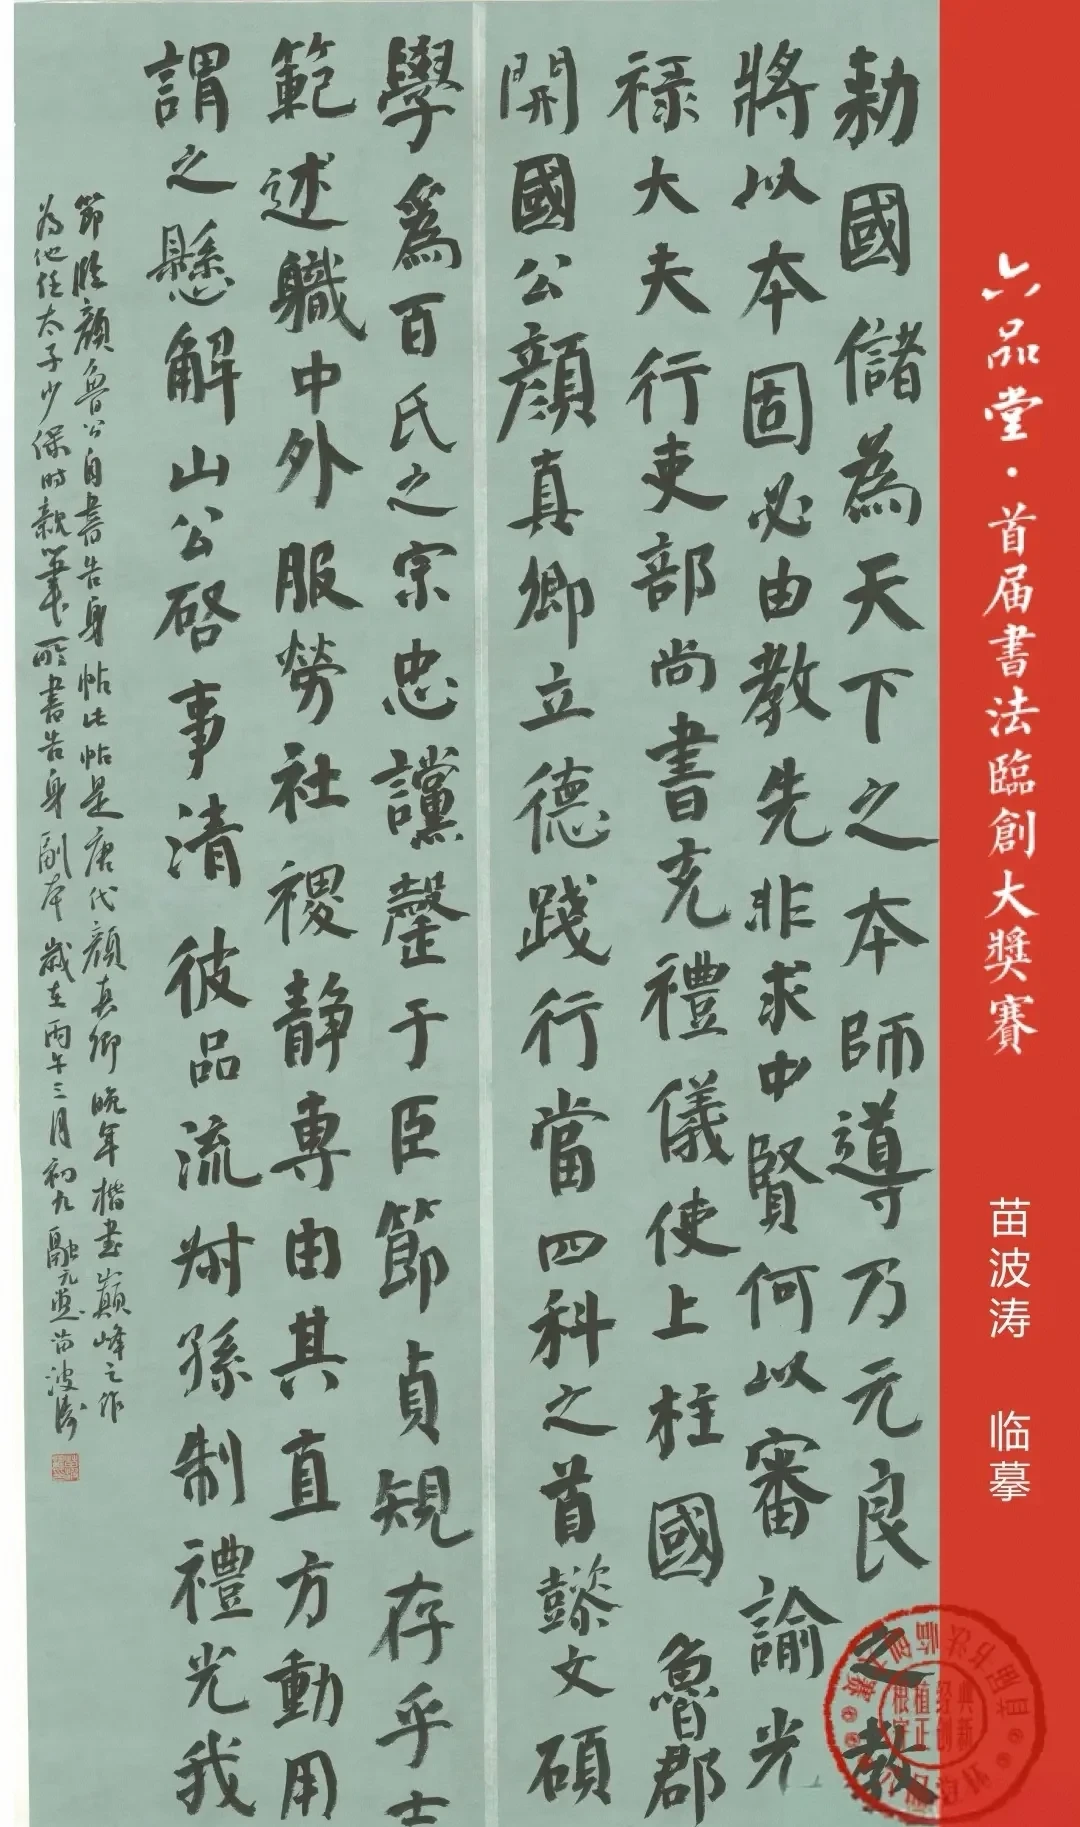 六品堂·首届書法臨創大獎賽
苗波涛 临摹
勅國儲為天下之本師導乃元良之教
將以本固必由教先非求中賢何以審諭光
禄大夫行吏部尚書充禮儀使上柱國魯郡
開國公顔真卿立德踐行當四科之首懿文碩
學爲百氏之宗忠讜罄于臣節貞規存乎士
範述職中外服勞社稷静專由其直方動用
謂之懸解山公啓事清彼品流叔孫制禮光我
節臨顔魯公自書告身帖此帖是唐代顔真卿晚年楷書巔峰之作
為他任太子少保時親筆所書告身副本 歲在丙午三月初九 融元堂 苗波涛
根植经典
守正创新